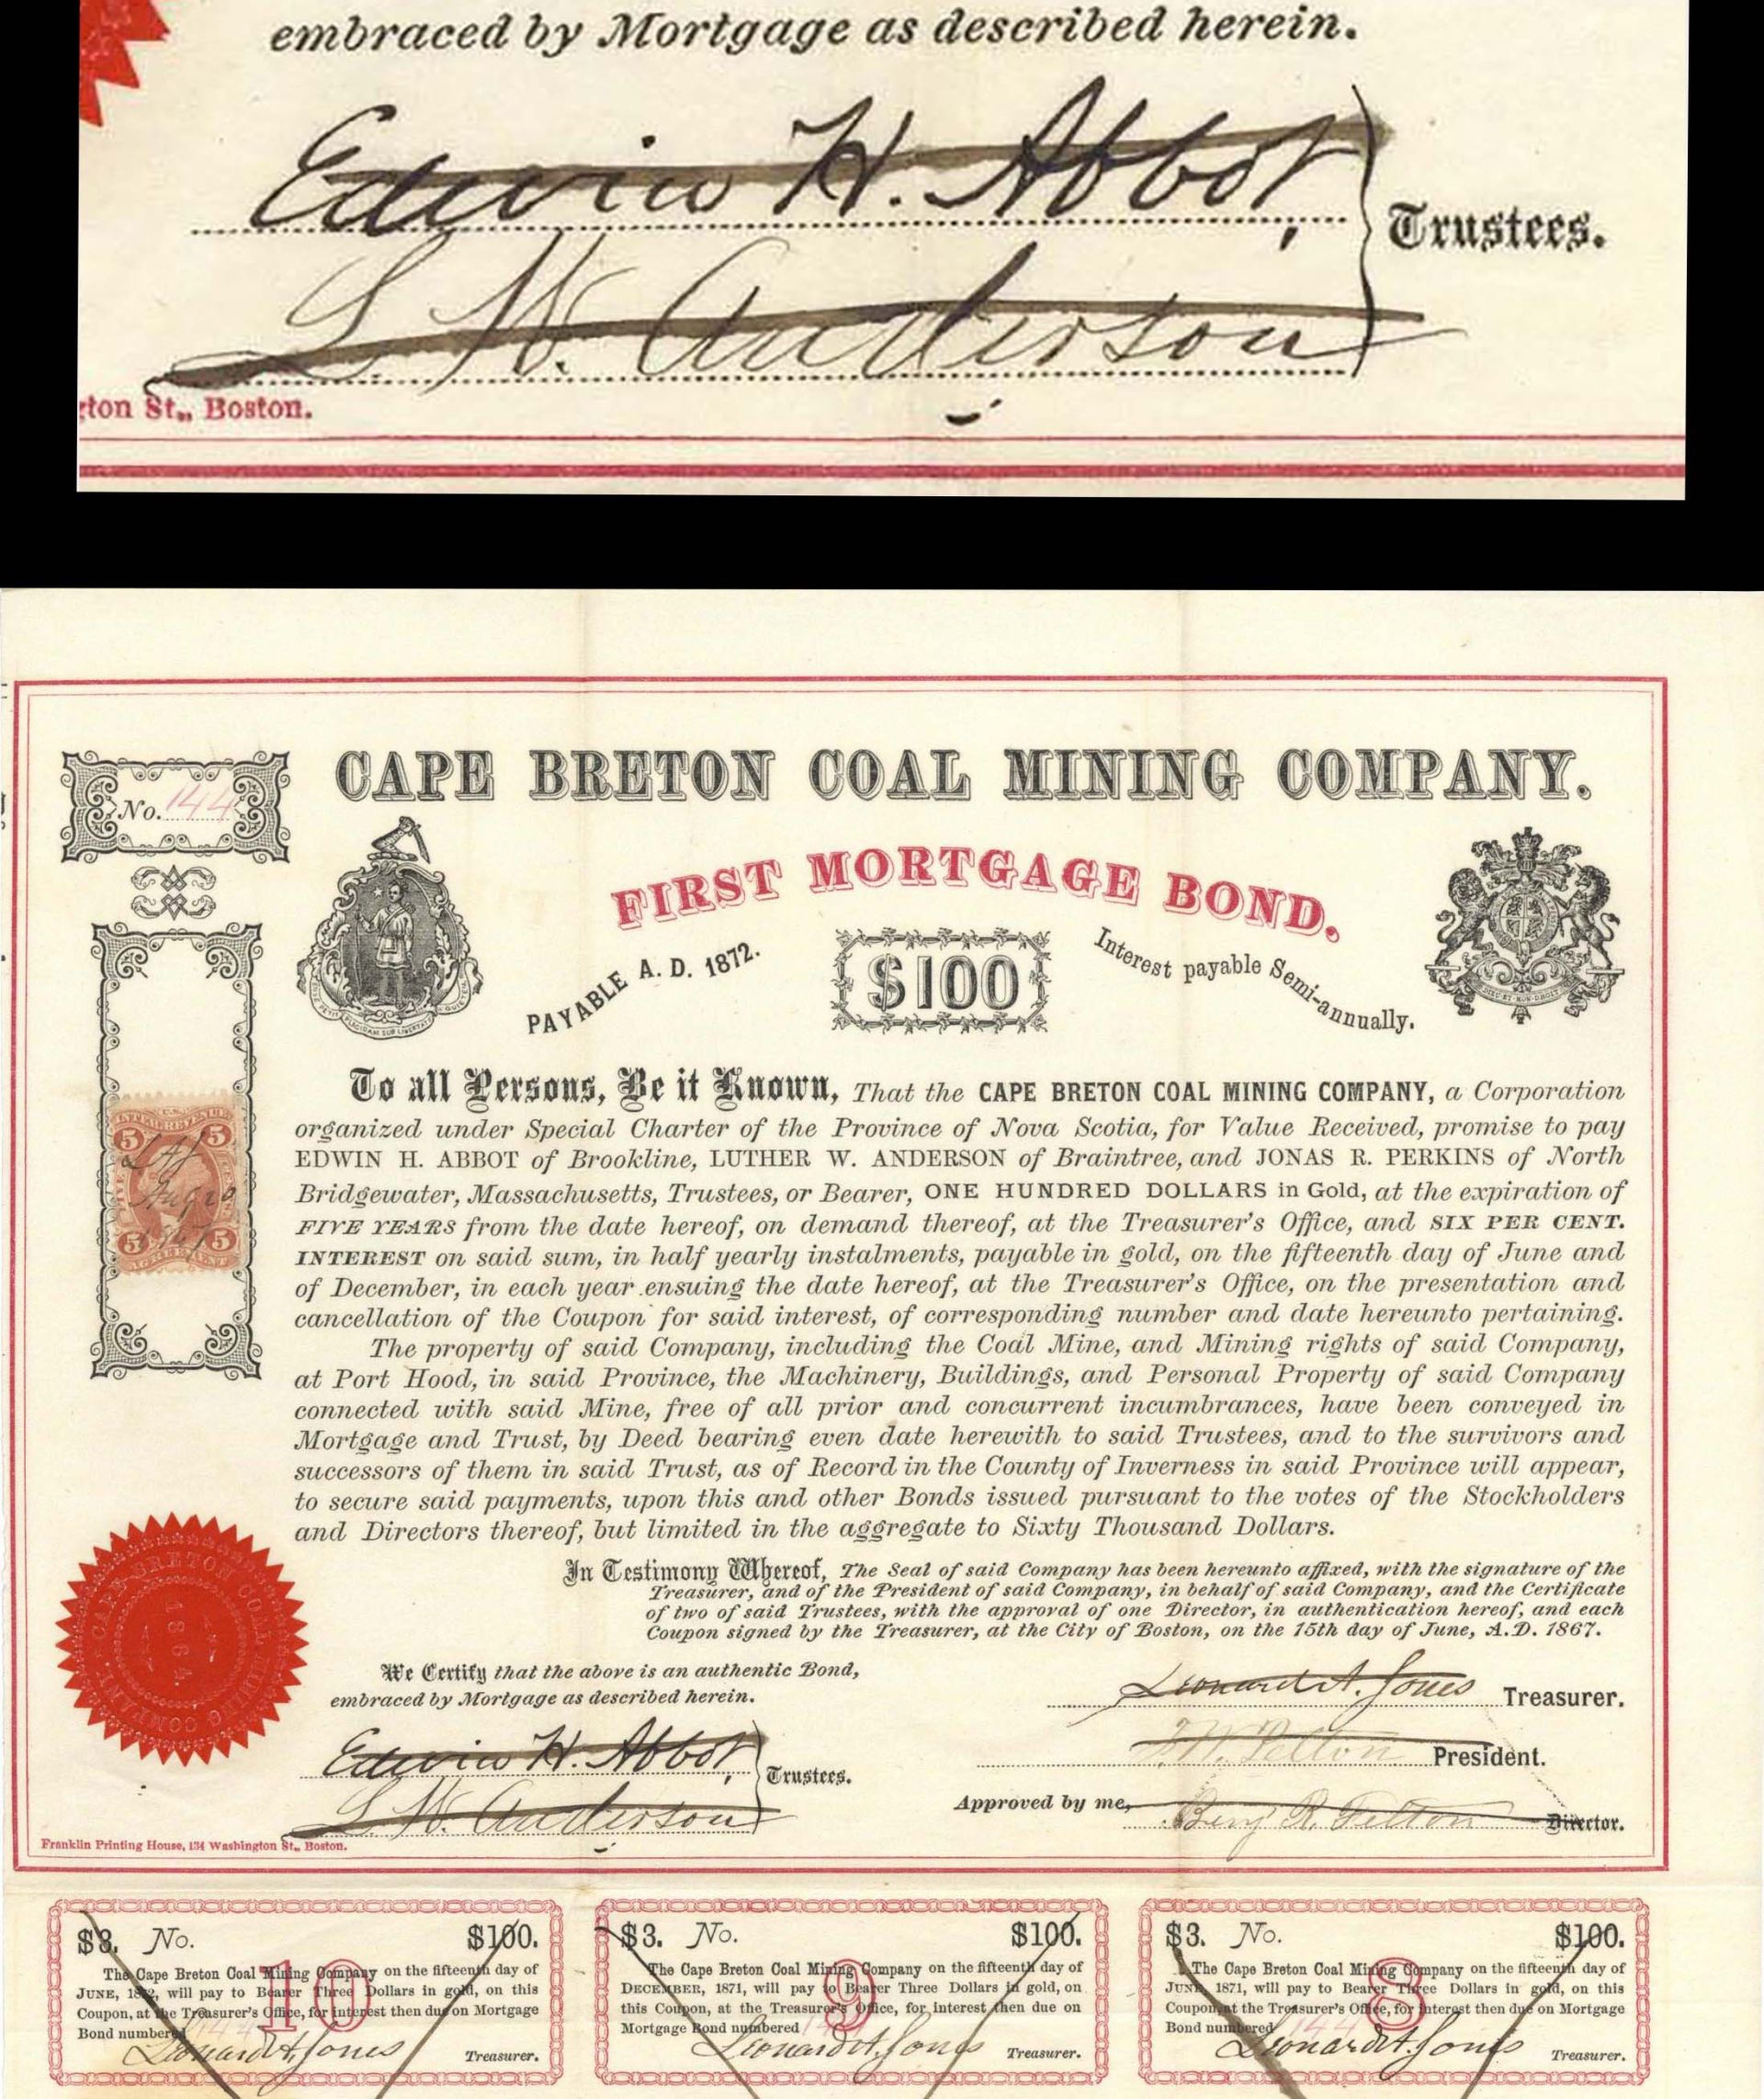 embraced by Mortgage as described herein.
Edwin H. Abbot,
Trustees.
L. W. Anderson
gton St., Boston.
CAPE BRETON COAL MINING COMPANY.
No. 144
FIRST MORTGAGE BOND.
PAYABLE A. D. 1872.
$100
Interest payable Semi-annually.
To all Persons, Be it Known, That the CAPE BRETON COAL MINING COMPANY, a Corporation
organized under Special Charter of the Province of Nova Scotia, for Value Received, promise to pay
EDWIN H. ABBOT of Brookline, LUTHER W. ANDERSON of Braintree, and JONAS R. PERKINS of North
Bridgewater, Massachusetts, Trustees, or Bearer, ONE HUNDRED DOLLARS in Gold, at the expiration of
FIVE YEARS from the date hereof, on demand thereof, at the Treasurer's Office, and SIX PER CENT.
INTEREST on said sum, in half yearly instalments, payable in gold, on the fifteenth day of June and
of December, in each year ensuing the date hereof, at the Treasurer's Office, on the presentation and
cancellation of the Coupon for said interest, of corresponding number and date hereunto pertaining.
The property of said Company, including the Coal Mine, and Mining rights of said Company,
at Port Hood, in said Province, the Machinery, Buildings, and Personal Property of said Company
connected with said Mine, free of all prior and concurrent incumbrances, have been conveyed in
Mortgage and Trust, by Deed bearing even date herewith to said Trustees, and to the survivors and
successors of them in said Trust, as of Record in the County of Inverness in said Province will appear,
to secure said payments, upon this and other Bonds issued pursuant to the votes of the Stockholders
and Directors thereof, but limited in the aggregate to Sixty Thousand Dollars.
5 5
LAJ
Aug 20
5 5
In Testimony Whereof, The Seal of said Company has been hereunto affixed, with the signature of the
Treasurer, and of the President of said Company, in behalf of said Company, and the Certificate
of two of said Trustees, with the approval of one Director, in authentication hereof, and each
Coupon signed by the Treasurer, at the City of Boston, on the 15th day of June, A.D. 1867.
CAPE BRETON COAL MINING COMPANY
1864
We Certify that the above is an authentic Bond,
embraced by Mortgage as described herein.
Edwin H. Abbot,
Trustees.
L. W. Anderson
Leonard A. Jones Treasurer.
President.
Approved by me, Benj R. Felton Director.
Franklin Printing House, 134 Washington St., Boston.
$3. No. $100.
10
The Cape Breton Coal Mining Company on the fifteenth day of
JUNE, 1872, will pay to Bearer Three Dollars in gold, on this
Coupon, at the Treasurer's Office, for interest then due on Mortgage
Bond numbered 144
Leonard A. Jones Treasurer.
$3. No. $100.
9
The Cape Breton Coal Mining Company on the fifteenth day of
DECEMBER, 1871, will pay to Bearer Three Dollars in gold, on
this Coupon, at the Treasurer's Office, for interest then due on
Mortgage Bond numbered
Leonard A. Jones Treasurer.
$3. No. $100.
8
The Cape Breton Coal Mining Company on the fifteenth day of
JUNE, 1871, will pay to Bearer Three Dollars in gold, on this
Coupon, at the Treasurer's Office, for interest then due on Mortgage
Bond numbered 144
Leonard A. Jones Treasurer.